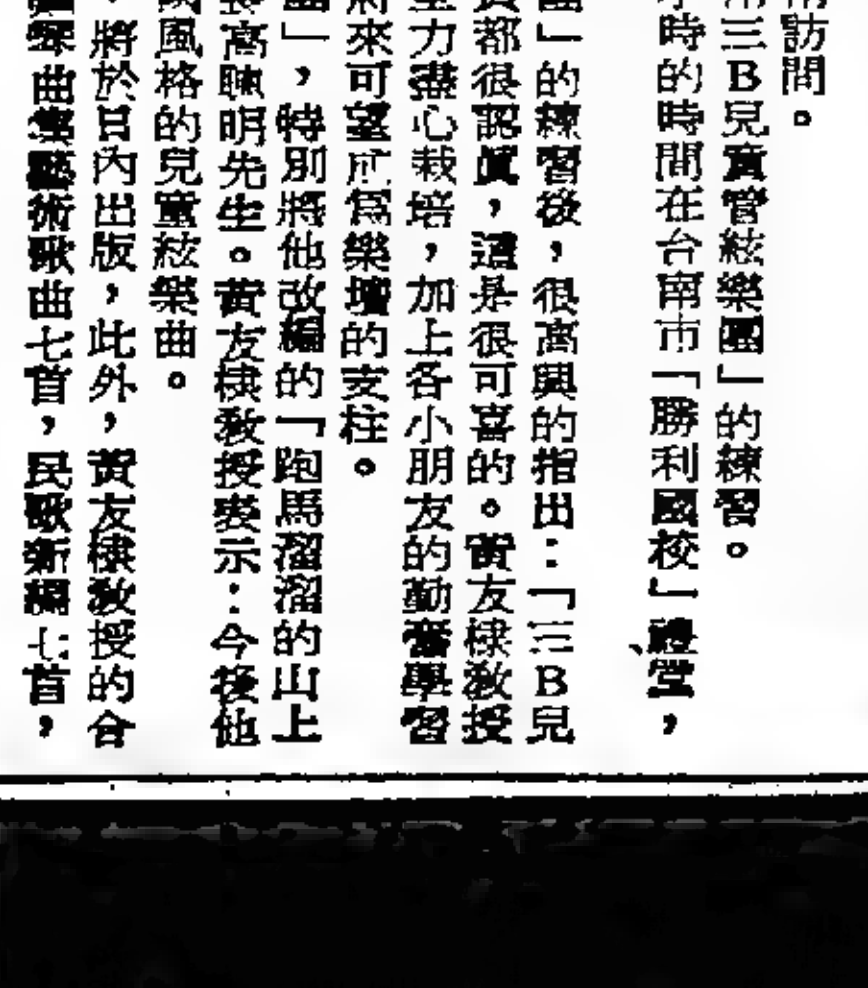 訪問。
三B兒童管絃樂團」的練習。
時的時間在台南市「勝利國校」禮堂，
」的練習後，很高興的指出：「三B兒
都很認眞，這是很可喜的。黃友棣敎授
力盡心栽培，加上各小朋友的勤奮學習
來可望成爲樂壇的支柱。
」，特別將他改編的「跑馬溜溜的山上
高聰明先生。黃友棣敎授表示：今後他
風格的兒童絃樂曲。
將於日內出版，此外，黃友棣敎授的合
琴曲集藝術歌曲七首，民歌新編七首，